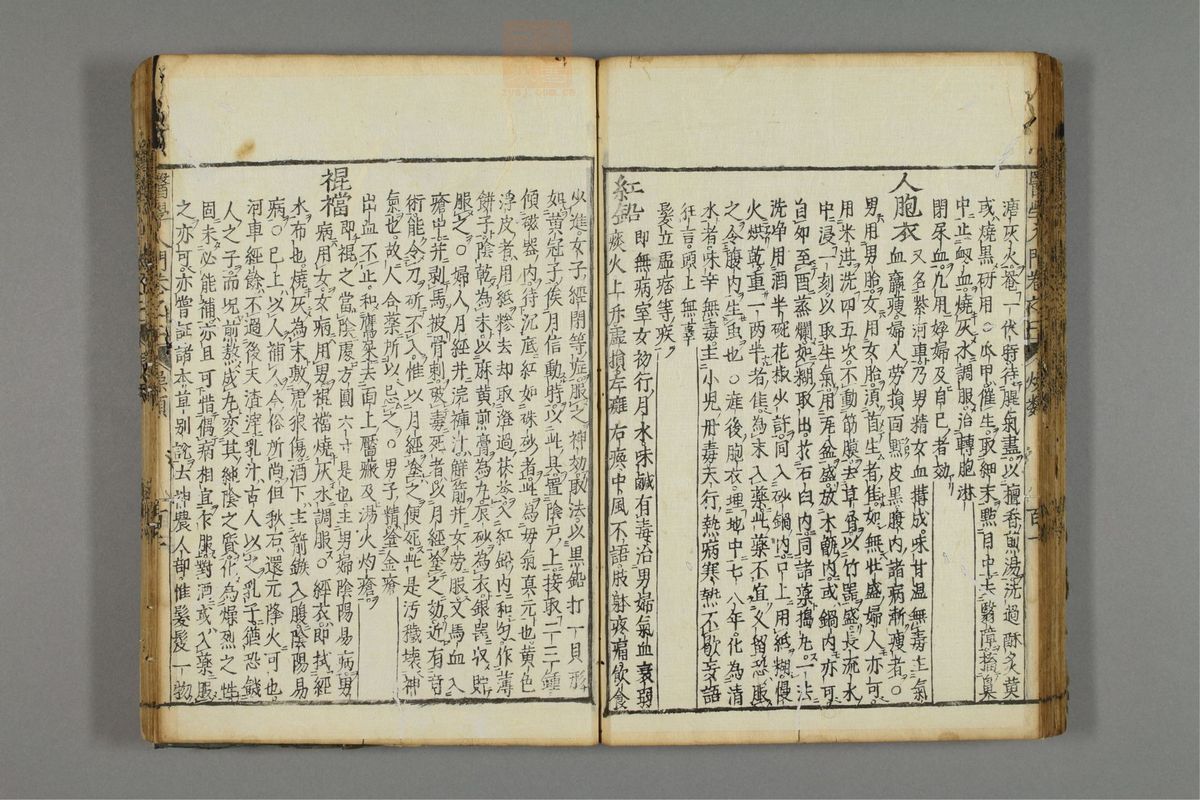 瀆灰火菴一伏時待腥氣盡以檀香煎湯洗過酥炙黃
或燒黑研用○爪甲催生取細末點目中去翳障擒鼻
中止衄血燒灰水調服治轉胞淋
閉尿血凡用妊婦及自己者効
人胞衣 又名紫河車乃男精女血搆成味甘溫無毒主氣
血羸瘦婦人勞損面䵟皮黑腹內諸病漸瘦者○
男用男胎女用女胎須首生者佳如無壯盛婦人亦可
用米泔洗四五次不動筋膜去草爲以竹器盛長流水
中浸一刻以取生氣用瓦盆盛放木甑內或鍋內亦可
自卯至酉蒸爛如糊取出先石臼內同諸藥搗丸一法
洗淨用酒半碗花椒少許同入砂鍋內口上用紙糊慢
火烘乾重一兩半者佳為末入藥此藥不宜久留恐服
之令腹內生䖝也○産後胞衣埋地中七八年化為清
水者味辛無毒主小兒丹毒天行熱病寒熱不歇妄語
狂言頭上無辜
髮立虛痞等疾
紅鉛 即無病室女初行月水味鹹有毒治男婦氣血衰弱
痰火上升虛損左癱右瘓中風不語肢躰疼痛飲食
少進女子經閉等症服之神効取法以黑鉛打一具形
如黃冠子候月信動時以此具置陰戶上接取一二三鍾
傾磁器內待沉底紅如硃砂者此為母氣真元也黃色
浮皮者用紙糝去却取澄過茯苓入紅鉛內和勻作薄
餅子陰乾為末以麻黃煎膏為丸辰砂為衣銀器收貯
服之○婦人月經并浣褲汁解箭并女勞服文馬血入
瘡中并剥馬被骨刺破毒死者以月經塗之効近有奇
術能令刀斫不入惟以月經塗之便死此是污穢壞神
氣也故人合藥所以忌之○男子精塗金瘡
出血不止和鷹𡱁去面上黶瘢及湯火灼瘡
裩襠 即裩之當陰處方圓六寸是也主男婦陰陽易病男
病用女女病用男裩襠燒灰水調服○經衣即拭經
水布也燒灰為末敷虎狼傷酒下主箭鏃入腹陰陽易
病○已上以人補人今俗所尚但秋石還元降火可也
河車經餘不過後天渣滓乳汁古人以之乳子猶恐餓
人之子而况煎熬成丸変其純陰之質化為燥烈之性
固未必能補亦且可惜傷病相宜乍服對酒或入藥服
之亦可亦嘗証諸本草別說云神農人部惟髮髲一物